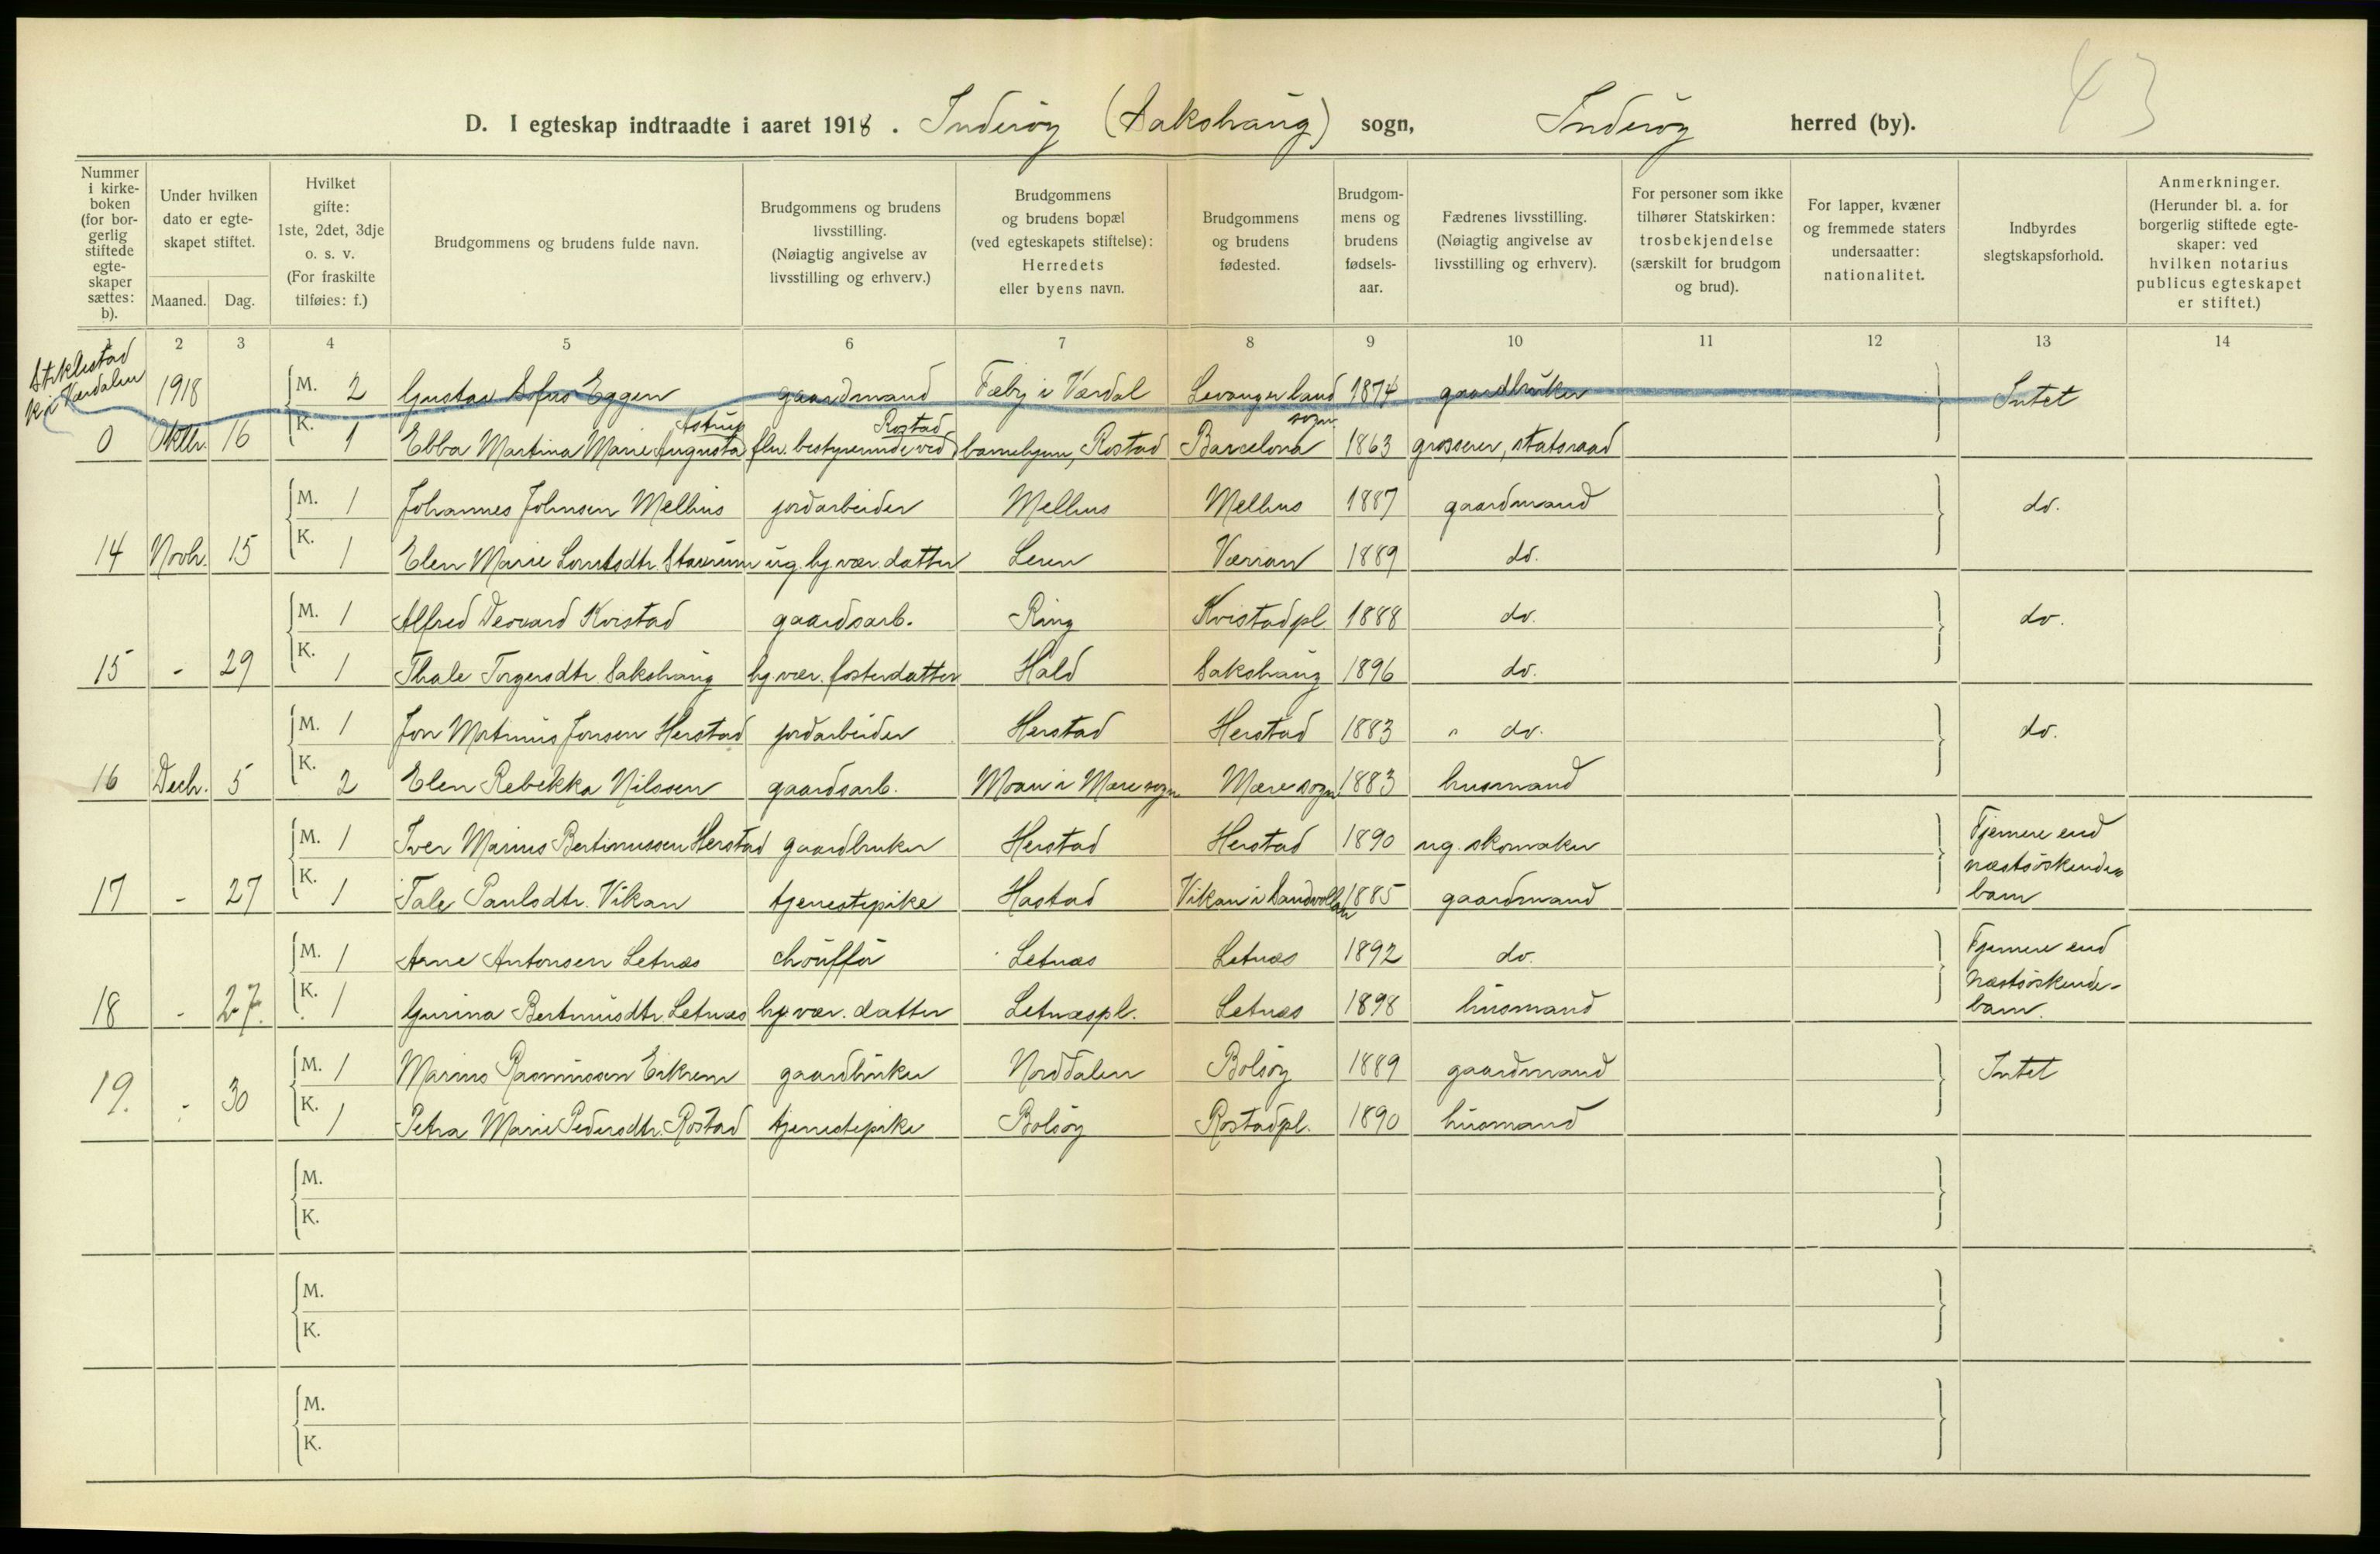 43
D. I egteskap indtraadte i aaret 1918. Inderöy (Sakshaug) sogn, Inderöy herred (by).
Nummer i kirke-boken (for bor-gerlig stiftede egte-skaper sættes: b).
Under hvilken dato er egte-skapet stiftet.
Maaned. Dag.
Hvilket gifte: 1ste, 2det, 3dje o. s. v. (For fraskilte tilføies: f.)
Brudgommens og brudens fulde navn.
Brudgommens og brudens livsstilling. (Nøiagtig angivelse av livsstilling og erhverv.)
Brudgommens og brudens bopæl (ved egteskapets stiftelse): Herredets eller byens navn.
Brudgommens og brudens fødested.
Brudgom-mens og brudens fødsels-aar.
Fædrenes livsstilling. (Nøiagtig angivelse av livsstilling og erhverv).
For personer som ikke tilhører Statskirken: trosbekjendelse (særskilt for brudgom og brud).
For lapper, kvæner og fremmede staters undersaatter: nationalitet.
Indbyrdes slegtskapsforhold.
Anmerkninger. (Herunder bl. a. for borgerlig stiftede egte-skaper: ved hvilken notarius publicus egteskapet er stiftet.)
1 2 3 4 5 6 7 8 9 10 11 12 13 14
Stiklestad
k. i Værdalen
1918 M. 2 Gustav Sofus Eggen gaardmand Fæby i Værdal Levanger land sogn 1874 gaardbruker Intet
0 Oktbr. 16 K. 1 Ebba Martina Marie Augusta Astrup flv. bestyrerinde ved Rostad barnehjem, Rostad Barcelona 1863 grosserer, statsraad
M. 1 Johannes Johnsen Melhus jordarbeider Melhus Melhus 1887 gaardmand do.
14 Novbr. 15 K. 1 Elen Marie Lorntsdtr. Stavrum ug. hj. vær. datter Leren Værran 1889 do.
M. 1 Alfred Deovard Kvistad gaardsarb. Ring Kvistadpl. 1888 do. do.
15 - 29 K. 1 Thale Torgersdtr. Sakshaug hj. vær. fosterdatter Hald Sakshaug 1896 do.
M. 1 Jon Martinius Jonsen Herstad jordarbeider Herstad Herstad 1883 " do. do.
16 Decbr. 5 K. 2 Elen Rebekka Nilssen gaardsarb. Moan i Mære sogn Mære sogn 1883 husmand
M. 1 Iver Marius Bertinussen Herstad gaardbruker Herstad Herstad 1890 ug. skomaker Fjernere end næstsöskende-barn
17 - 27 K. 1 Tale Paulsdtr. Vikan tjenestepike Hastad Vikan i Sandvollan 1885 gaardmand
M. 1 Arne Antonsen Letnæs chöufför Letnæs Letnæs 1892 do. Fjernere end næstsöskende-barn.
18 - 27. K. 1 Gurina Bertinusdtr. Letnæs hj. vær. datter Letnæspl. Letnæs 1898 husmand
M. 1 Marius Rasmussen Eikrem gaardbruker Norddalen Bolsöy 1889 gaardmand Intet
19. - 30 K. 1 Petra Marie Pedersdtr. Rostad tjenestepike Bolsöy Rostadpl. 1890 husmand
M.
K.
M.
K.
M.
K.